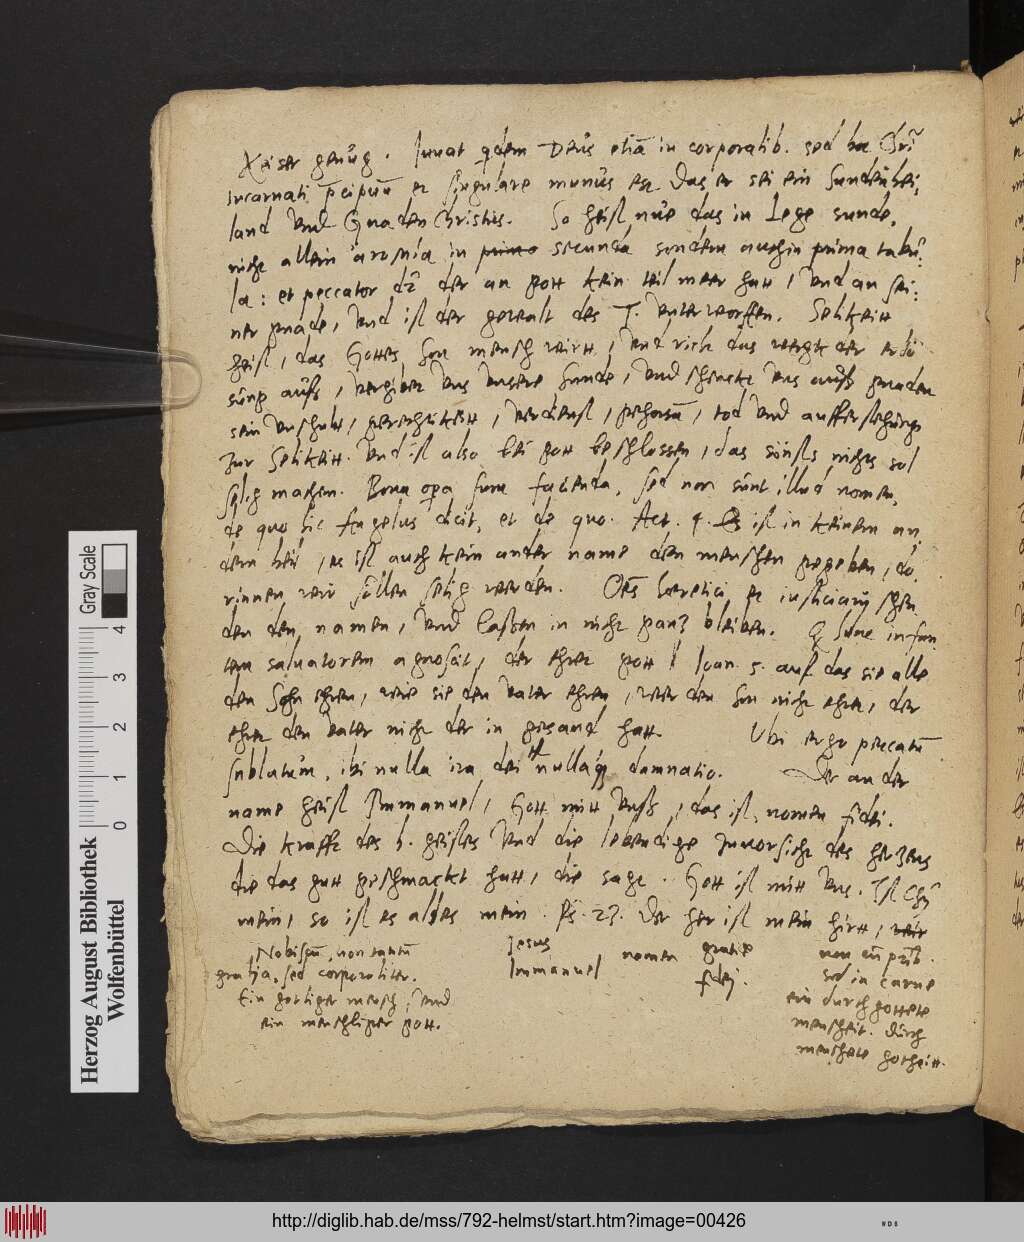 Keiser genug. Iuuat qdem Deus etiã in corporalib. sed hoc Chri
incarnati p̃cipuũ et singulare munus est das er sei ein sunden hei,
land vnd Gnaden Christus. So heist nue das in Lege sunde,
nicht allein in secunda sondern auch in prima tabu
la: et peccator der an gott kein teil meer hatt, vnd an sei:
ner gnade, vnd ist der gewalt des T. vnterworffen. Selikeitt
heist, das Gottes son mensch wirtt, vnd rich das wergk der erlö
sung auss, vergibet vns vnsere sunde, vnd schenckt vns auss gnaden
sein vnschult, gerechtikeitt, verdienst, gehorsã, tod vnd aufferstehung
zur Selikeitt. vnd ist also bei gott beschlossen, das sünsts nichts sol
selig machen. Bona opa sunt facienda, sed non sunt illud nomen,
de quo hic Angelus dicit, et de quo. Act. 4. Es ist in keinem an
dern heil, es ist auch kein ander name den menschen gegeben, do
rinnen wir söllen selig werden. Oẽs haeretici et iusticiarij schen
den den namen, vnd lassen in nicht gantz bleiben. Q hunc infan
tem saluatorem agnoscit, der ehret gott Ioan. 5. auf das sie alle
den Sohn ehren, wie sie den vater ehren, wer den son nicht ehret, der
ehret den vater nicht der in gesand hatt Vbi ergo peccatũ
sublatum, ibi nulla ira dei nulla damnatio. Der ander
name heist Immanuel, Gott mitt vnss, das ist, nomen fidei.
Die krafft des h. geistes vnd die lebendige zuuorsicht des hertzens
die das gutt geschmackt hatt, die saget. Gott ist mitt vns. Ist Chrs
mein, so ist es alles mein. Ps. 23. Der her ist mein hirtt, wir
Nobiscũ, non tantũ
gratia, sed corporaliter.
Ein gottiger mensch, vnd
ein menschliger gott.
Jesus
Immanuel nomen gratie
fidej.
sed in carne
ein durchgottete
mensheit. durch
menschete gotheitt.
Herzog August Bibliothek
Wolfenbüttel
Gray Scale
0 1 2 3 4
http://diglib.hab.de/mss/792-helmst/start.htm?image=00426